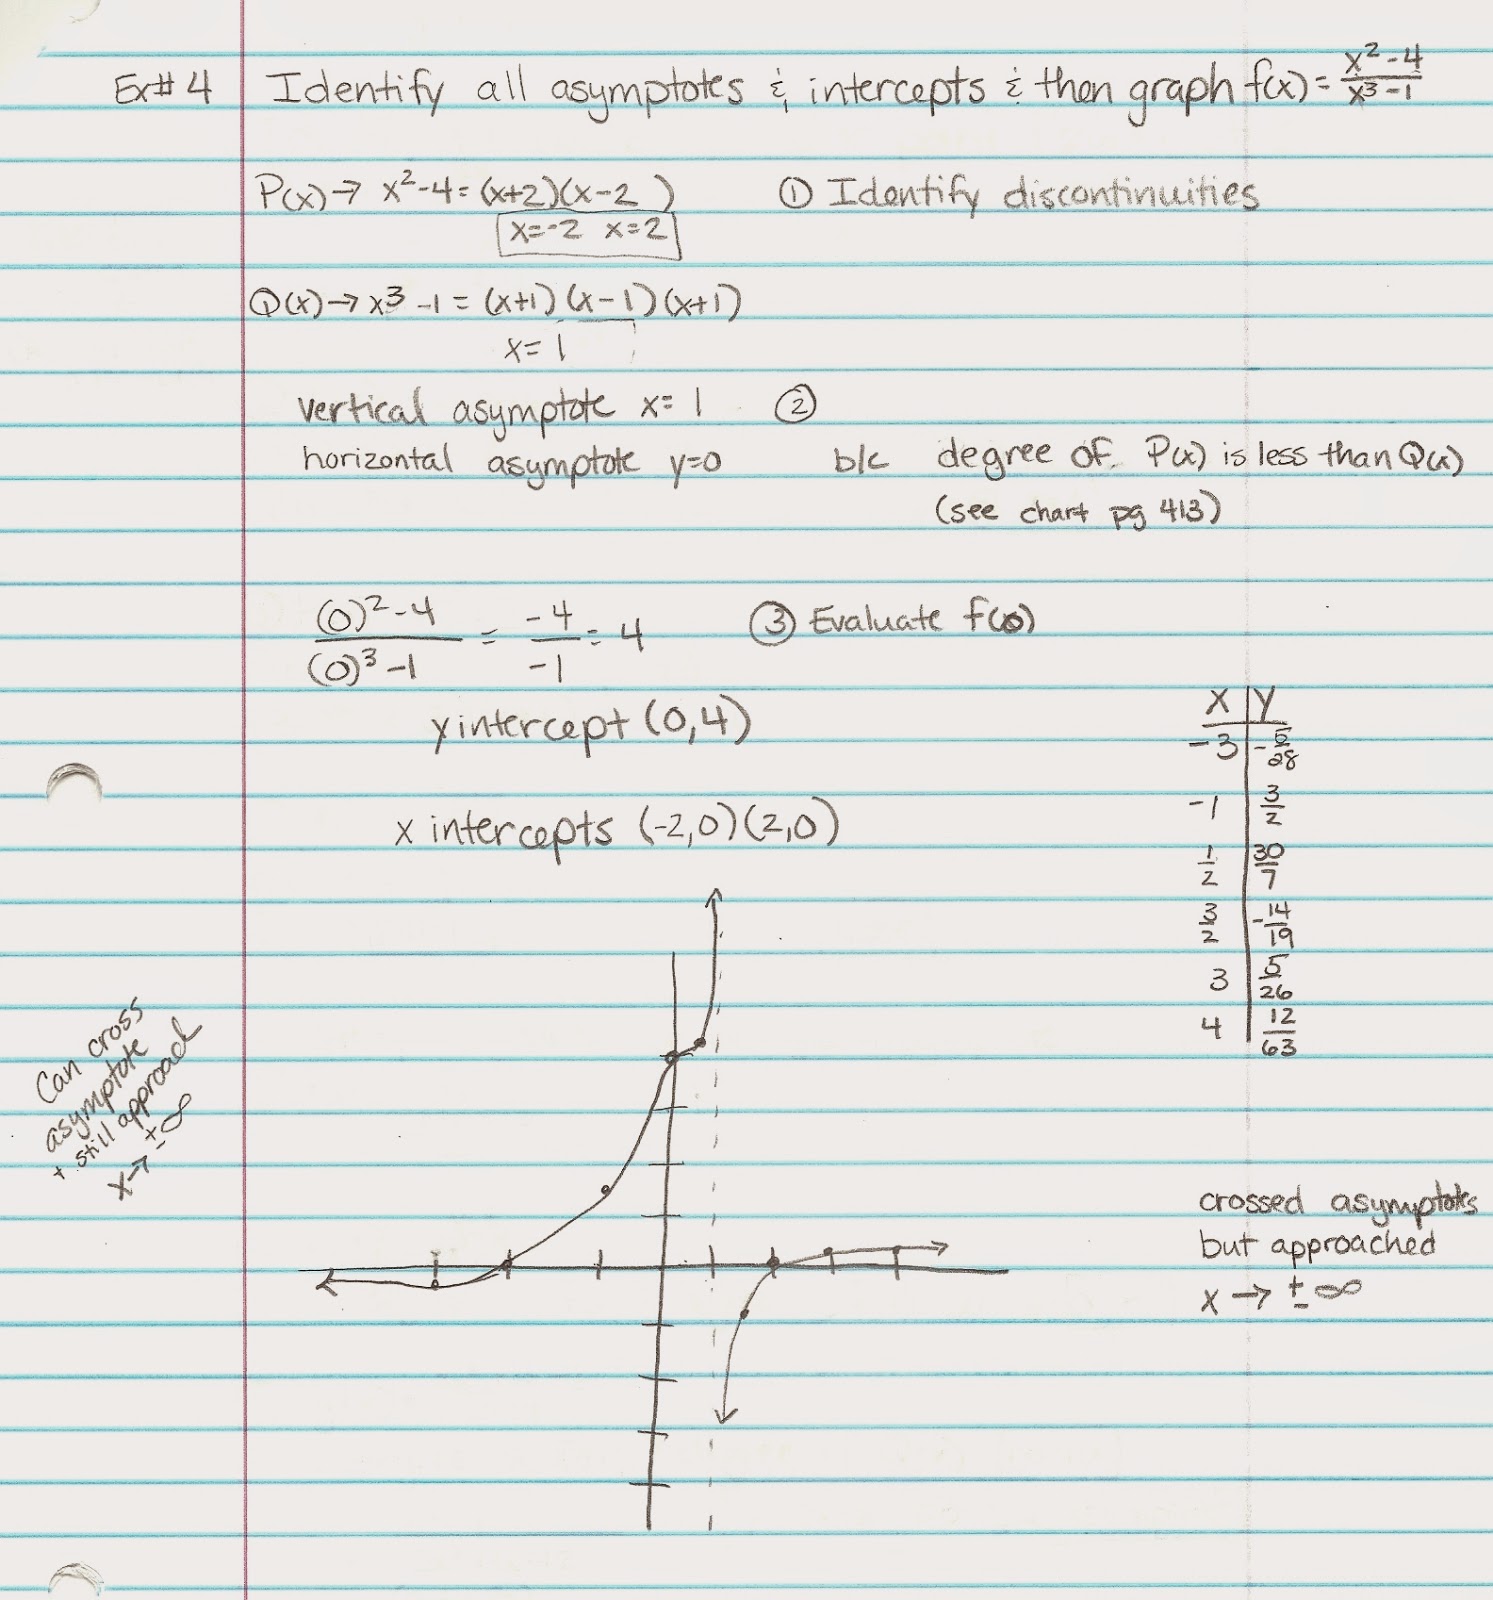 Ex# 4 Identify all asymptotes & intercepts & then graph f(x) = x² - 4 / x³ - 1
P(x) → x² - 4 = (x+2)(x-2) ① Identify discontinuities
x = -2 x = 2
Q(x) → x³ - 1 = (x+1)(x-1)(x+1)
x = 1
vertical asymptote x = 1 ②
horizontal asymptote y=0 b/c degree of P(x) is less than Q(x)
(see chart pg 413)
(0)² - 4 / (0)³ - 1 = -4 / -1 = 4 ③ Evaluate f(0)
y intercept (0,4)
x intercepts (-2,0)(2,0)
x y
-3 -5/28
-1 3/2
1/2 30/7
3/2 -14/19
3 5/26
4 12/63
Can cross
asymptote
+ still approach
x → ±∞
crossed asymptotes
but approached
x → ±∞